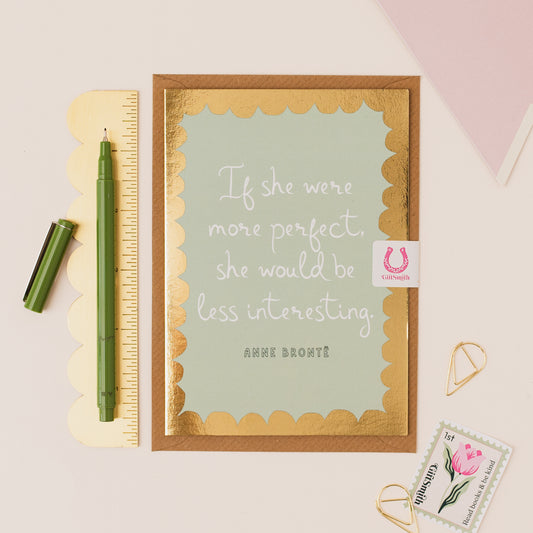 If she were
more perfect,
she would be
less interesting.
ANNE BRONTË
GiftSmith
1st
GiftSmith
Read books & be kind